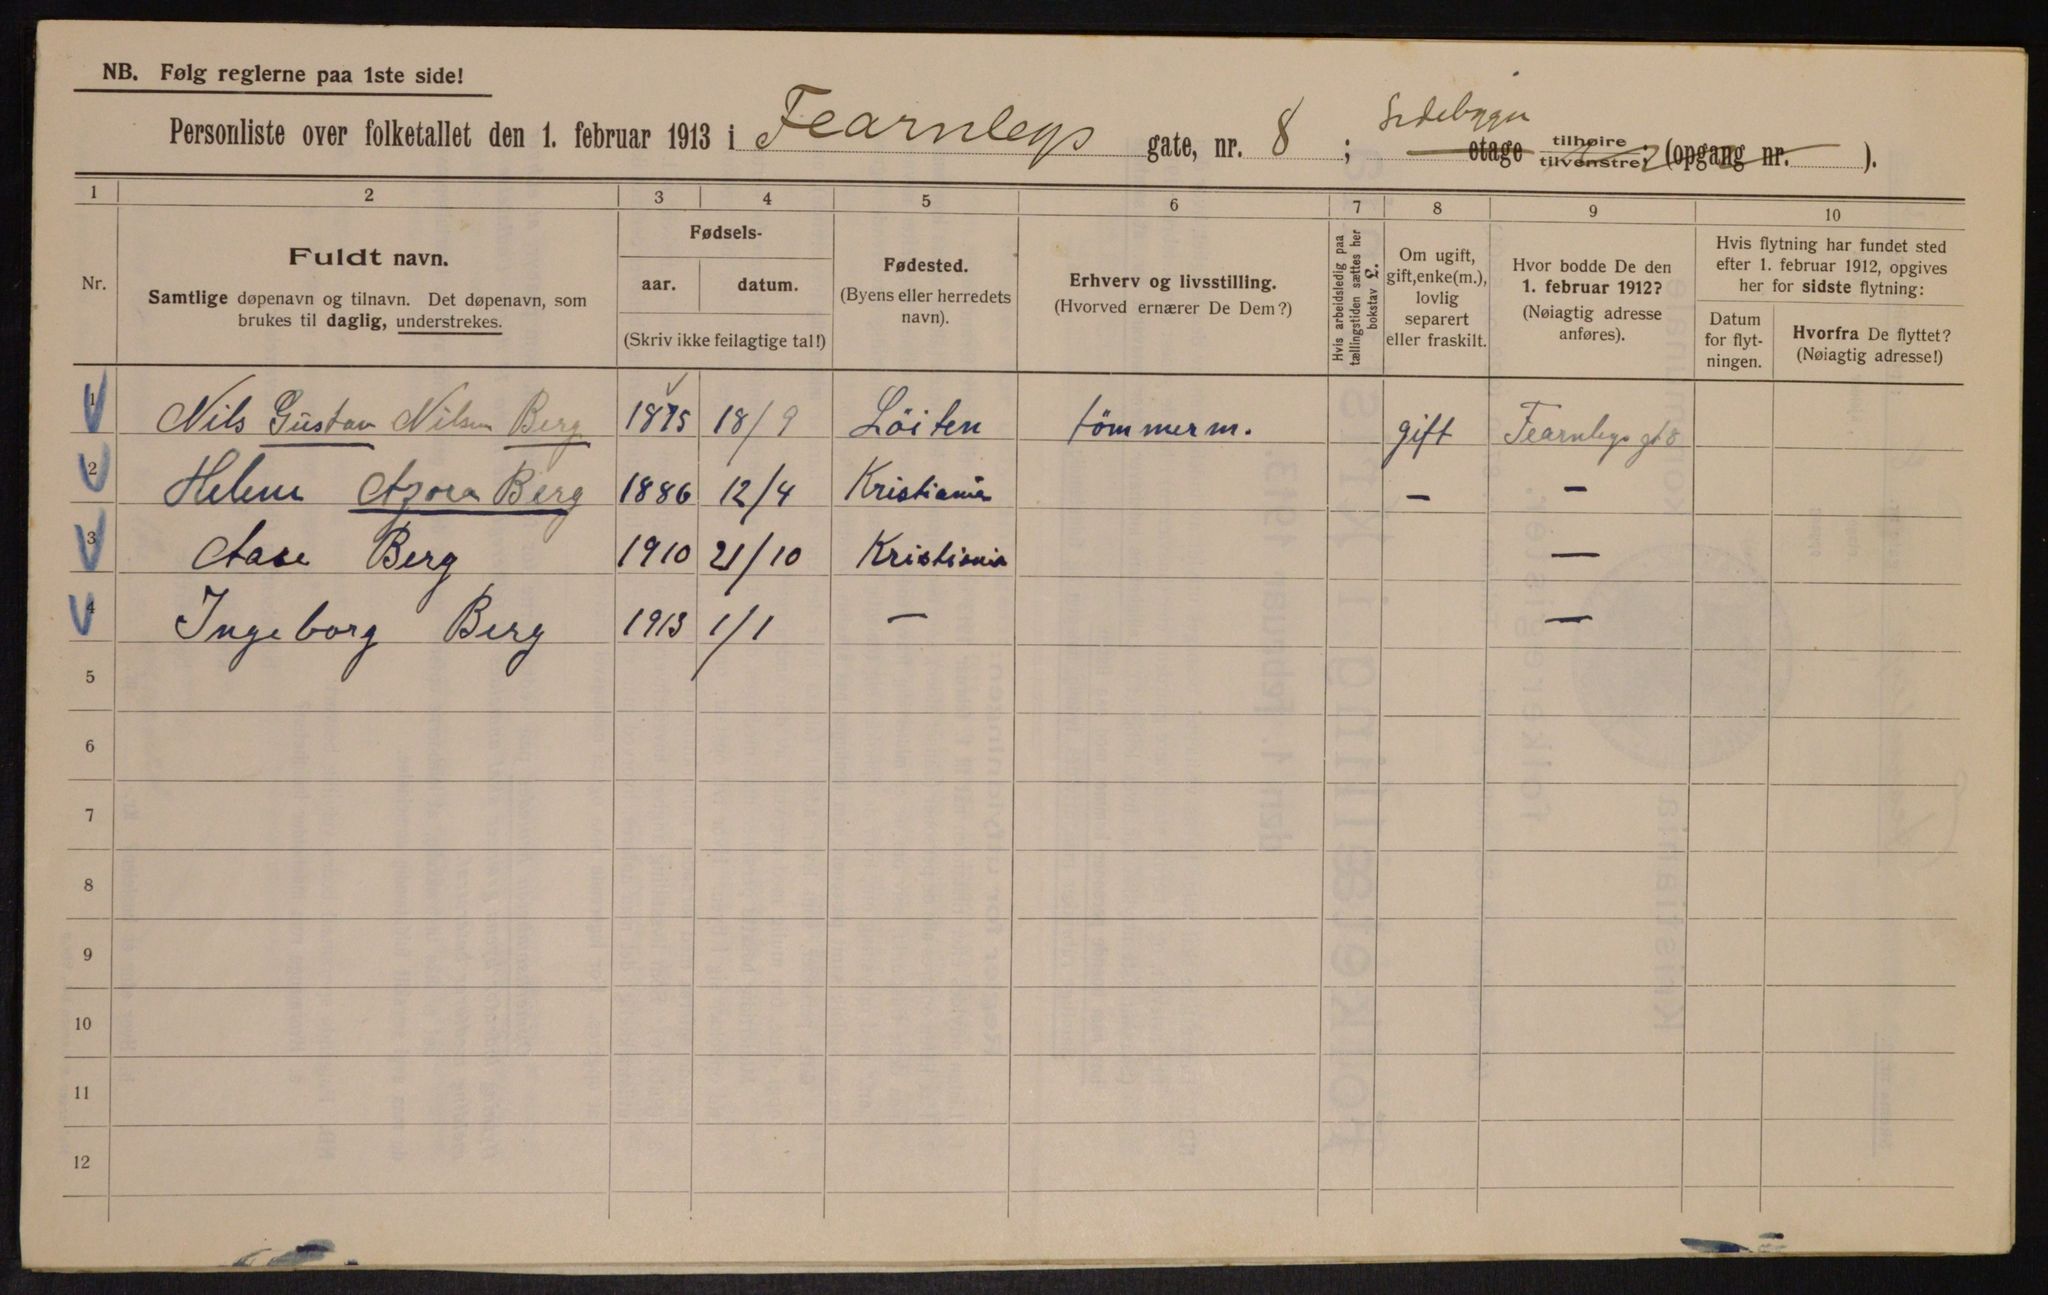 NB. Følg reglerne paa 1ste side!
Personliste over folketallet den 1. februar 1913 i Fearnleys gate, nr. 8 ; Sidebygn etage tilhøire tilvenstre; (opgang nr. ).
1 2 3 4 5 6 7 8 9 10
Nr.
Fuldt navn.
Samtlige døpenavn og tilnavn. Det døpenavn, som
brukes til daglig, understrekes.
Fødsels-
aar. datum.
(Skriv ikke feilagtige tal!)
Fødested.
(Byens eller herredets
navn).
Erhverv og livsstilling.
(Hvorved ernærer De Dem?)
Hvis arbeidsledig paa
tællingstiden sættes her
bokstav £.
Om ugift,
gift, enke(m.),
lovlig
separert
eller fraskilt.
Hvor bodde De den
1. februar 1912?
(Nøiagtig adresse
anføres).
Hvis flytning har fundet sted
efter 1. februar 1912, opgives
her for sidste flytning:
Datum
for flyt-
ningen.
Hvorfra De flyttet?
(Nøiagtig adresse!)
1 Nils Gustav Nilsen Berg 1875 18/9 Löiten tömmerm. gift Fearnleys gt 8
2 Helene Azora Berg 1886 12/4 Kristiania — —
3 Aase Berg 1910 21/10 Kristiania —
4 Ingeborg Berg 1913 1/1 — —
5
6
7
8
9
10
11
12